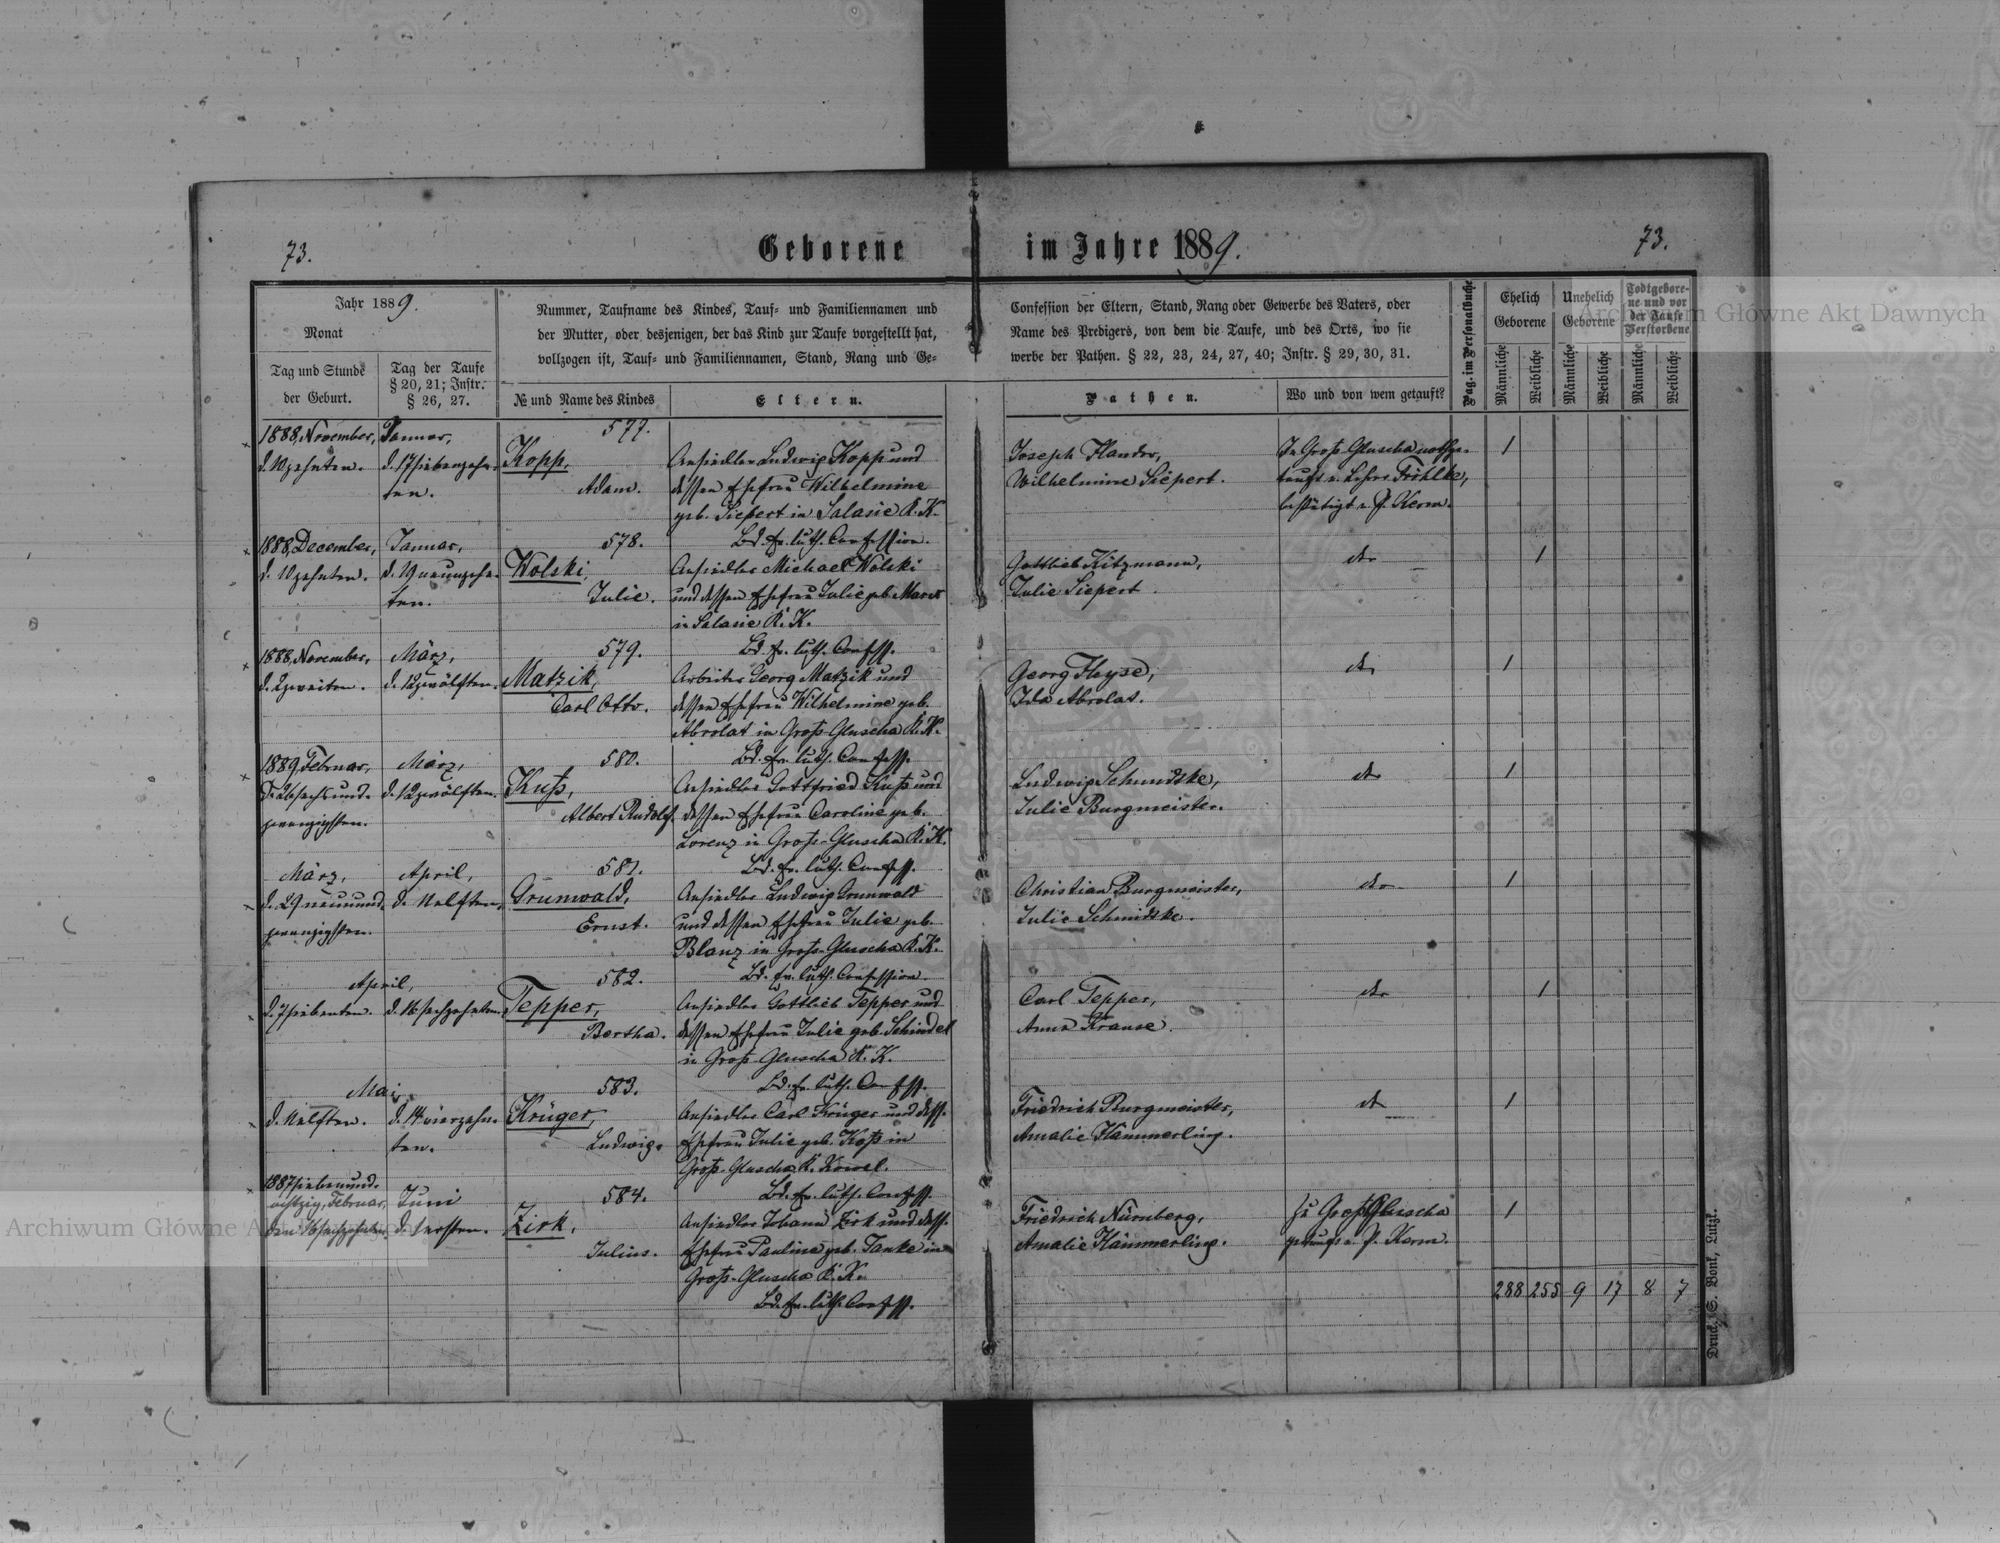 73.
Geborene im Jahre 1889.
73.
Jahr 1889.
Monat
Tag und Stunde
der Geburt.
Tag der Taufe
§ 20, 21; Instr.
§ 26, 27.
Nummer, Taufname des Kindes, Tauf- und Familiennamen und
der Mutter, oder desjenigen, der das Kind zur Taufe vorgestellt hat,
vollzogen ist, Tauf- und Familiennamen, Stand, Rang und Ge-
№ und Name des Kindes
Eltern.
Confession der Eltern, Stand, Rang oder Gewerbe des Vaters, oder
Name des Predigers, von dem die Taufe, und des Orts, wo sie
werbe der Pathen. § 22, 23, 24, 27, 40; Instr. § 29, 30, 31.
Pathen.
Wo und von wem getauft?
Pag. im Personalbuche
Ehelich
Geborene
Unehelich
Geborene
Todtgebore-
ne und vor
der Taufe
Verstorbene
Männliche
Weibliche
Männliche
Weibliche
Männliche
Weibliche
1888, November,
d. 10 zehnten.
Januar,
d. 17 siebenzehn-
ten.
577.
Kopp,
Adam.
Ansiedler Ludwig Kopp und
dessen Ehefrau Wilhelmine
geb. Siepert in Salasie K. K.
Bd. ev. luth. Confession.
Joseph Flander,
Wilhelmine Siepert.
In Groß-Gluscha nothge-
tauft v. Lehrer Fröhlke,
bestätigt v. P. Kerm.
1
1888, December,
d. 10 zehnten.
Januar,
d. 19 neunzehn-
ten.
578.
Wolski,
Julie.
Ansiedler Michael Wolski
und dessen Ehefrau Julie geb.
in Salasie K. K.
Bd. ev. luth. Confess.
Gottlieb Kitzmann,
Julie Siepert.
1
1888, November,
d. 2 zweiten.
März,
d. 12 zwölften.
579.
Matzik,
Carl Otto.
Arbeiter Georg Matzik und
dessen Ehefrau Wilhelmine geb.
Abrolat in Groß-Gluscha K. K.
Bd. ev. luth. Confess.
Georg Heyse,
Ida Abrolat.
1
1889, Februar,
d. 26 sechsund-
zwanzigsten.
März,
d. 12 zwölften.
580.
Kuß,
Albert Rudolf.
Ansiedler Gottfried Kuß und
dessen Ehefrau Caroline geb.
Lorenz in Groß-Gluscha K. K.
Bd. ev. luth. Confess.
Ludwig Schmidske,
Julie Burgmeister.
1
März,
d. 29 neunund-
zwanzigsten.
April,
d. 11 elften.
581.
Grunwald,
Ernst.
Ansiedler Ludwig Grunwald
und dessen Ehefrau Julie geb.
Blanz in Groß-Gluscha K. K.
Bd. ev. luth. Confession.
Christian Burgmeister,
Julie Schmidske.
1
April,
d. 7 siebenten.
d. 16 sechzehnten.
582.
Tepper,
Bertha.
Ansiedler Gottlieb Tepper und
dessen Ehefrau Julie geb. Schindel
in Groß-Gluscha K. K.
Bd. ev. luth. Confess.
Carl Tepper,
Anna Krause.
1
Mai,
d. 11 elften.
d. 14 vierzehn-
ten.
583.
Krüger,
Ludwig.
Ansiedler Carl Krüger und dess.
Ehefrau Julie geb. Koß in
Groß-Gluscha K. Kowel.
Bd. ev. luth. Confess.
Friedrich Burgmeister,
Amalie Hämmerling.
1
1887 siebenund-
achtzig, Februar,
den 16 sechzehnten.
Juni
d. 1 ersten.
584.
Zirk,
Julius.
Ansiedler Johann Zirk und dess.
Ehefrau Pauline geb. Janke in
Groß-Gluscha K. K.
Bd. ev. luth. Confess.
Friedrich Nürnberg,
Amalie Hämmerling.
Zu Groß-Gluscha
getauft v. P. Kerm.
1
288 255 9 17 8 7
Druck. S. Bonk, Lutzk.
Archiwum Główne Akt Dawnych
Archiwum Główne Akt Dawnych